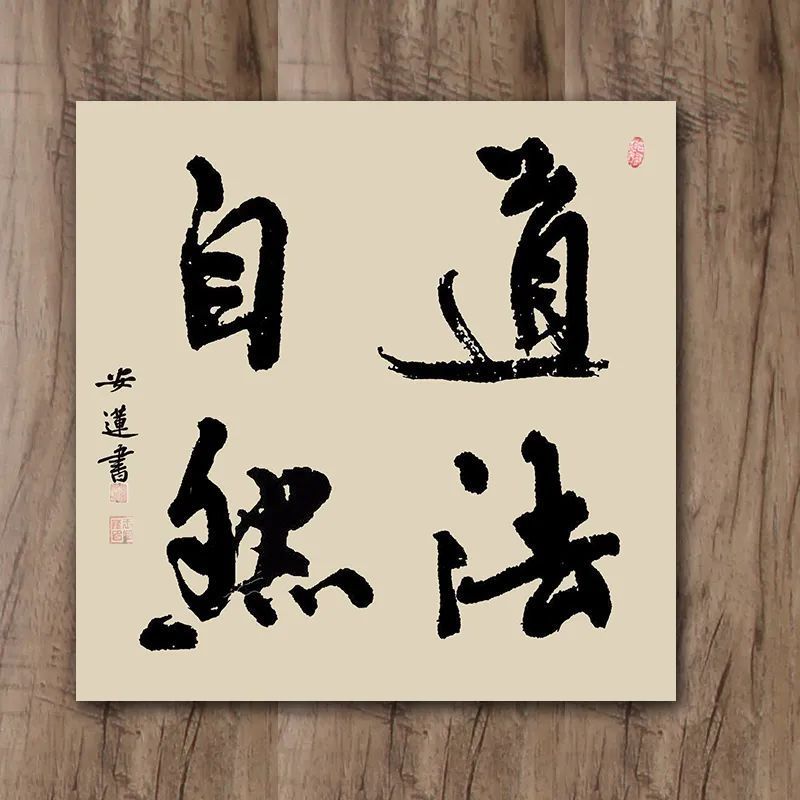 道法
自然
安蓮書